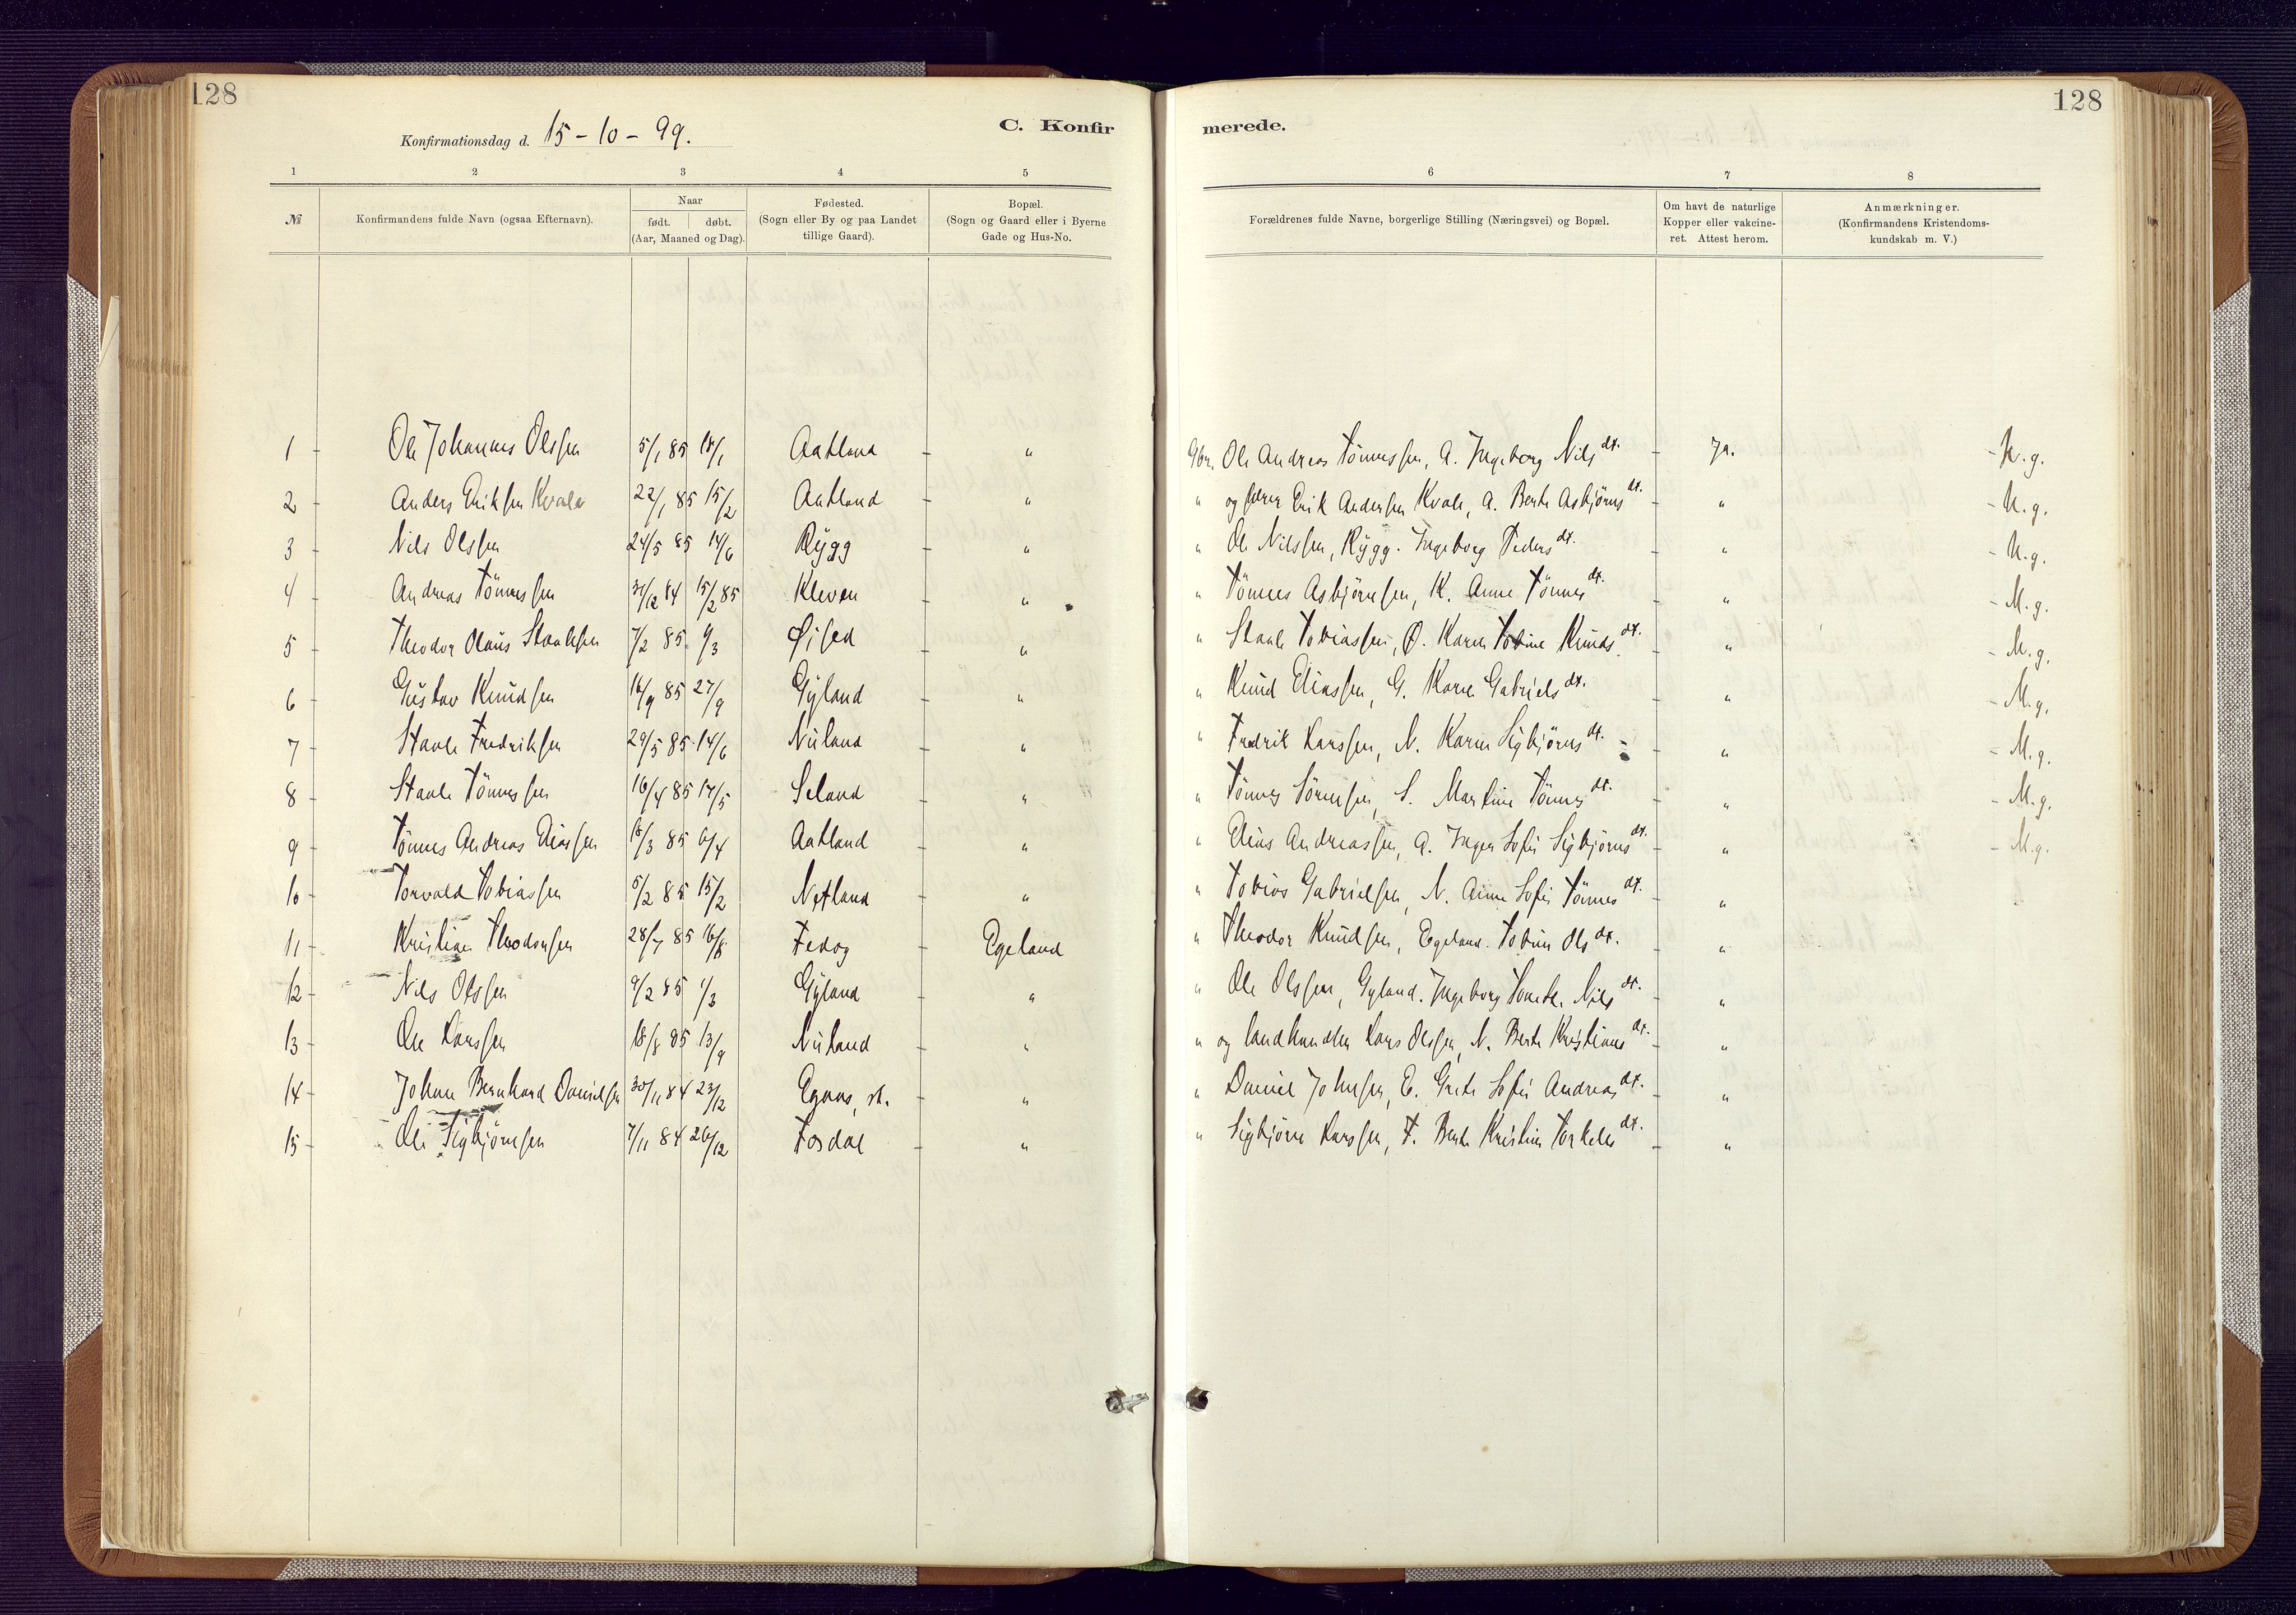 128
128
Konfirmationsdag d. 15-10-99.
C. Konfir
merede.
1 2 3 4 5 6 7 8
№
Konfirmandens fulde Navn (ogsaa Efternavn).
Naar
født. døbt.
(Aar, Maaned og Dag).
Fødested.
(Sogn eller By og paa Landet
tillige Gaard).
Bopæl.
(Sogn og Gaard eller i Byerne
Gade og Hus-No.
Forældrenes fulde Navne, borgerlige Stilling (Næringsvei) og Bopæl.
Om havt de naturlige
Kopper eller vakcine-
ret. Attest herom.
Anmærkninger.
(Konfirmandens Kristendoms-
kundskab m. V.)
1 - Ole Johannes Olsen 5/1 85 18/1 Aatland - " Gbr. Ole Andreas Tönnessen, A. Ingeborg Nilsdt. - Ja. - N.g.
2 - Anders Eriksen Kvale 22/1 85 15/2 Aatland - " " og Erik Andersen Kvale, A. Berte Asbjörnsdt. - " - N.g.
3 - Nils Olssen 24/5 85 14/6 Rygg - " " Ole Nilssen, Rygg. Ingeborg Pedersdt. - " - N.g.
4 - Andreas Tönnessen 31/12 84 15/2 85 Kleven - " " Tönnes Asbjörnsen, K. Anne Tönnesdt. - " - M.g.
5 - Theodor Olaus Staalesen 7/2 85 1/3 Øysæd - " " Staale Tobiassen, Ø. Karen Tobine Knudsdt. - " - M.g.
6 - Gustav Knudsen 16/9 85 27/9 Gyland - " " Knud Eliassen, G. Karen Gabrielsdt. - " - M.g.
7 - Staale Fredriksen 29/5 85 14/6 Nuland - " " Fredrik Larssen, N. Karen Sigbjörnsdt. - " - M.g.
8 - Staale Tönnessen 16/4 85 17/5 Seland - " " Tönnes Sörensen, S. Martine Tönnesdt. - " - M.g.
9 - Tönnes Andreas Eliassen 18/3 85 6/4 Aatland - " " Elias Andreassen, A. Inger Sofie Sigbjörnsdt. - " - M.g.
10 - Torvald Tobiassen 5/2 85 15/2 Netland - " " Tobias Gabrielsen, N. Anne Sofie Tönnesdt. - "
11 - Kristian Theodorsen 28/7 85 16/8 Fedog - Egeland " Theodor Knudsen, Egeland. Tobine Olsdt. - "
12 - Nils Olssen 9/2 85 1/3 Gyland - " " Ole Olssen, Gyland. Ingeborg Tomete Nilsdt. - "
13 - Ole Larssen 18/8 85 13/9 Nuland - " " og landhandler Lars Olssen, N. Berte Kristiansdt. - "
14 - Johan Bernhard Danielsen 30/11 84 23/12 Egaas, st. - " " Daniel Johnsen, E. Grete Sofie Andreasdt. - "
15 - Ole Sigbjörnsen 7/11 84 26/12 Fosdal - " " Sigbjörn Larssen, F. Berte Kristine Torkelsdt. - "